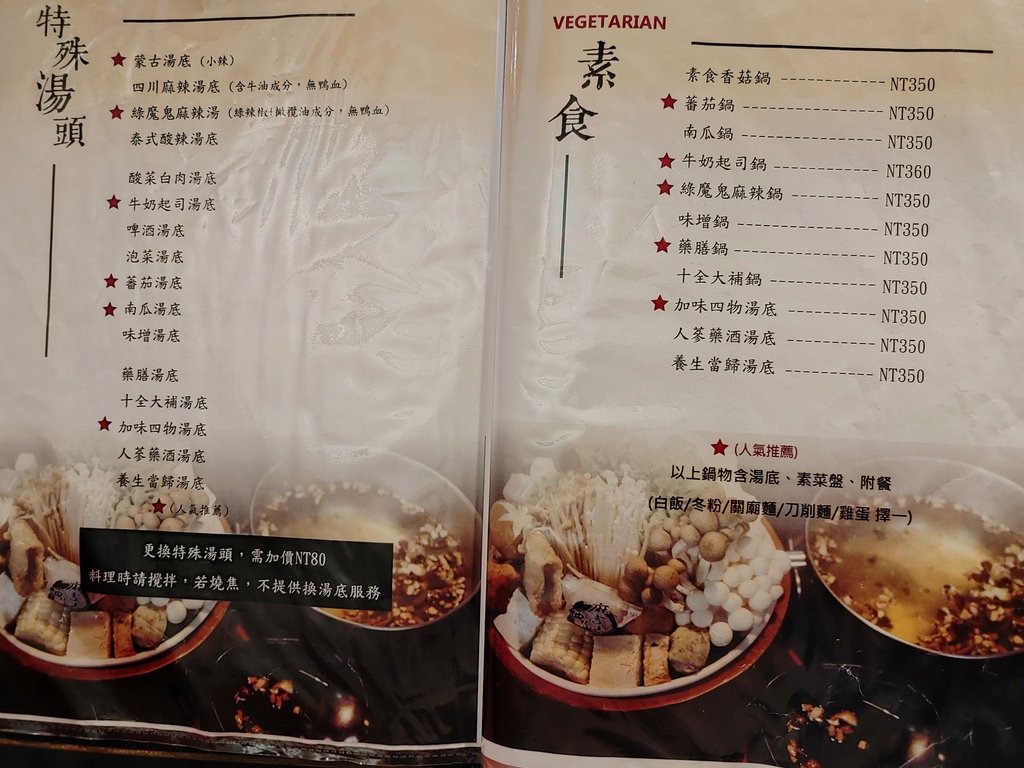 特殊湯頭
★ 蒙古湯底 (小辣)
四川麻辣湯底 (含牛油成分，無鴨血)
★ 綠魔鬼麻辣湯 (綠辣椒+橄欖油成分，無鴨血)
泰式酸辣湯底
酸菜白肉湯底
★ 牛奶起司湯底
啤酒湯底
泡菜湯底
★ 蕃茄湯底
★ 南瓜湯底
味增湯底
藥膳湯底
十全大補湯底
★ 加味四物湯底
人蔘藥酒湯底
養生當歸湯底
★ (人氣推薦)
更換特殊湯頭，需加價NT80
料理時請攪拌，若燒焦，不提供換湯底服務
VEGETARIAN
素食
素食香菇鍋 ------------ NT350
★ 蕃茄鍋 ---------------- NT350
南瓜鍋 ---------------- NT350
★ 牛奶起司鍋 ------------ NT360
★ 綠魔鬼麻辣鍋 ---------- NT350
味增鍋 ---------------- NT350
★ 藥膳鍋 ---------------- NT350
十全大補鍋 ------------ NT350
★ 加味四物湯底 ---------- NT350
人蔘藥酒湯底 ---------- NT350
養生當歸湯底 ---------- NT350
★ (人氣推薦)
以上鍋物含湯底、素菜盤、附餐
(白飯/冬粉/關廟麵/刀削麵/雞蛋 擇一)